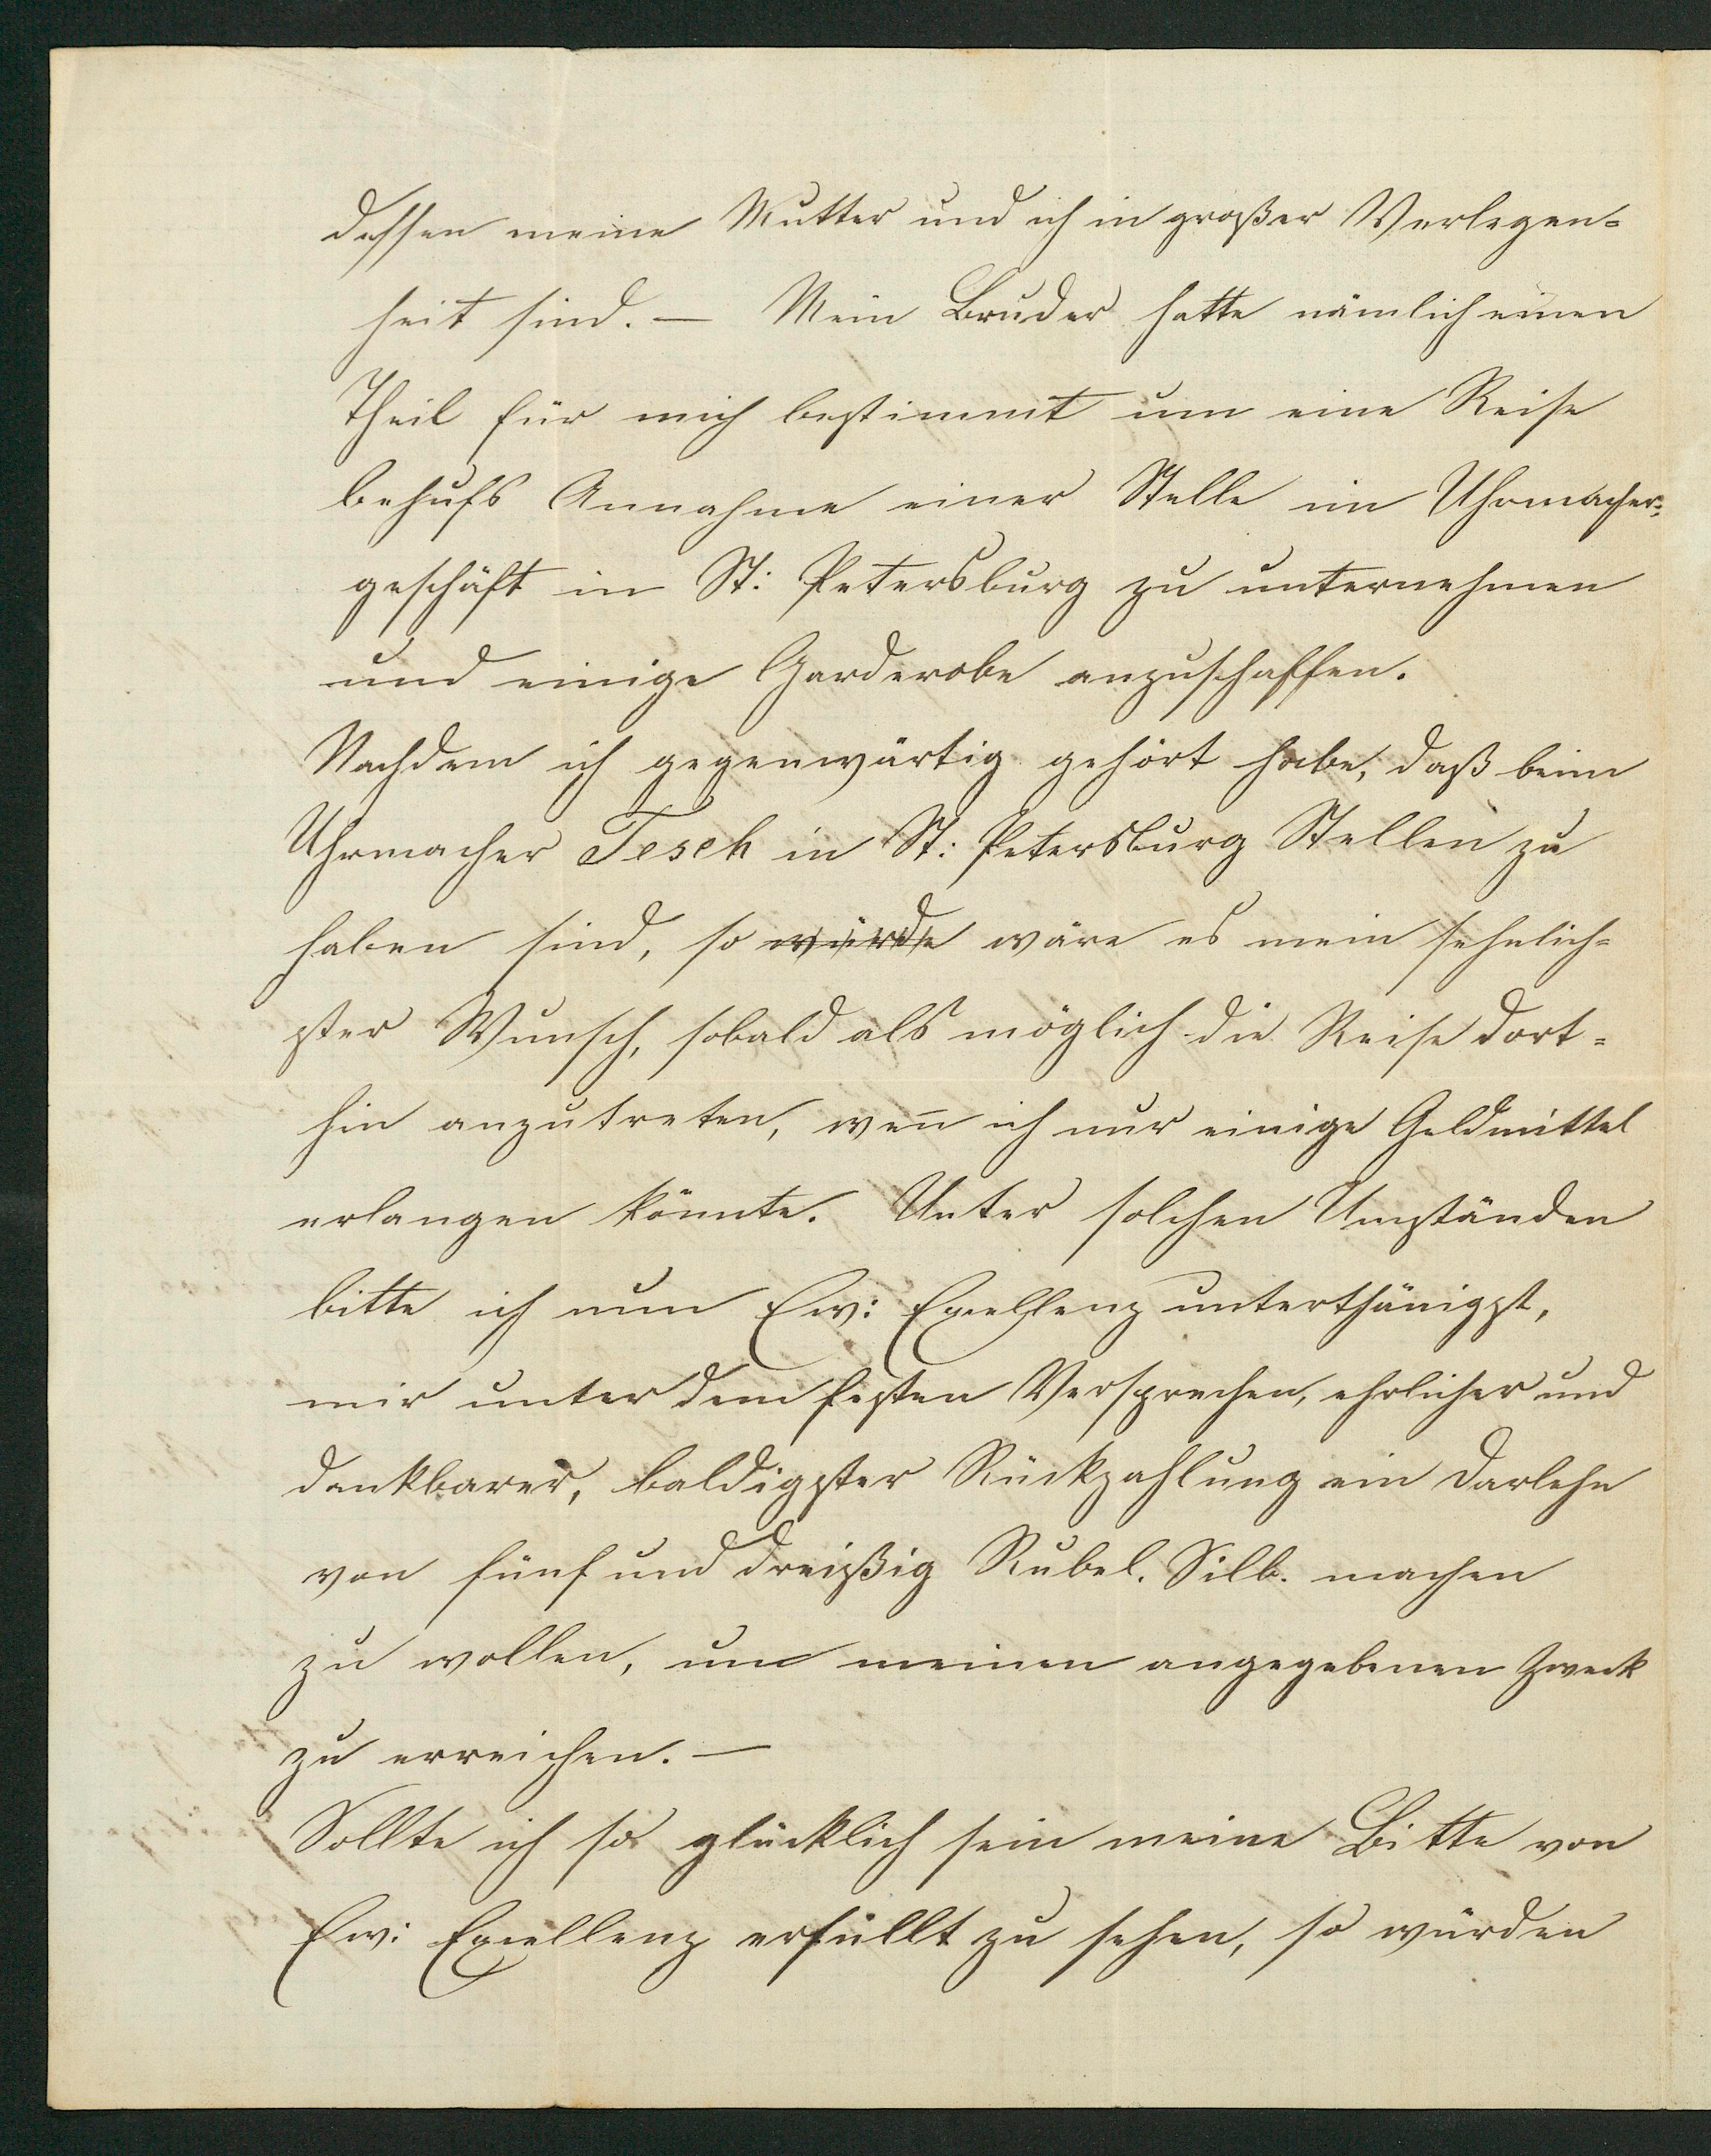 dessen meine Mutter und ich in großer Verlegen=
heit sind. — Mein Bruder hatte nämlich einen
Theil für mich bestimmt um eine Reise
behufs Annahme einer Stelle im Uhrmacher=
geschäft in St: Petersburg zu unternehmen
und einige Garderobe anzuschaffen.
Nachdem ich gegenwärtig gehört habe, daß beim
Uhrmacher Tesch in St: Petersburg Stellen zu
haben sind, so würde wäre es mein sehnlich=
ster Wunsch, sobald als möglich die Reise dort=
hin anzutreten, wen̄ ich nur einige Geldmittel
erlangen könnte. Unter solchen Umständen
bitte ich nun Ew: Excellenz unterthänigst,
mir unter dem festen Versprechen, ehrlicher und
dankbarer, baldigster Rückzahlung ein Darlehn
von fünf und dreißig Rubel. Silb. machen
zu wollen, um meinen angegebenen Zweck
zu erreichen. —
Sollte ich so glücklich sein meine Bitte von
Ew: Excellenz erfüllt zu sehen, so würden